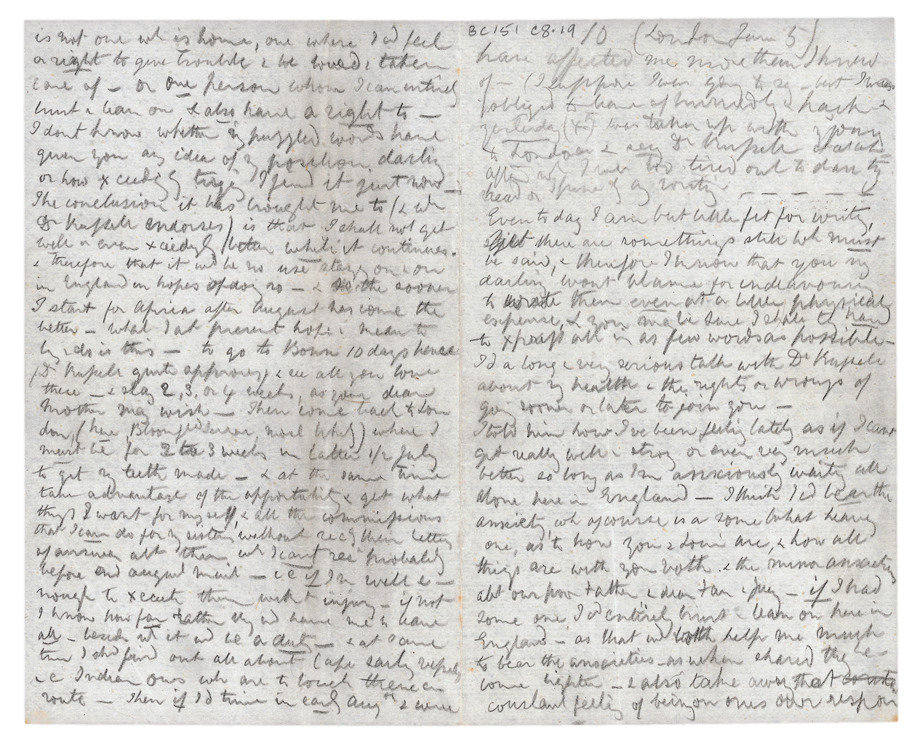 is not one wh is home, one where I'd feel
a right to give trouble & be taken
care of – or one person whom I can entirely
trust & lean on & also have a right to –
I dont know whether my puzzled words have
given you any idea of my position, darling
or how xceedgly trying I find it just now –
The conclusion it has brought me to (& wh
Dr Kuspell endorses) is that I shall not get
well or even xceedgly better whilst it continues.
& therefore that it wd be no use staying on & on
in England in hopes of doing so – & the sooner
I start for Africa after August has come the
better – what I at present hope & mean to
try & do is this – to go to Bonn 10 days hence
(Dr Kuspell quite approving) & see all you love
there – & stay 2, 3, or 4 weeks, as your dear
Mother may wish – Then come back to Lon
don, (here, most likely) where I
must be for 2 to 3 weeks in latter 1/2 July
to get my teeth made – & at the same time
take advantage of the opportunity & get what
things I want for myself, & all the commissions
that I can do for my sisters without recg their letters
of answer abt them wh I cant rec probably
before end august mail – i e if I'm well e-
nough to xecute them witht injury – if not
I know how my wd have me to leave
all – besides wh it wd be a duty – & at same
time I shd find out all about Cape sailg vessels
i e Indian ones wh are to touch there en
route – Then if I'd time in early Augst & were
BC151 C8.19 10 (London June 5)
have affected me more than I knew
of – (I suppose I was going to say – but I was
obliged to leave off hurriedly & pack &
yesterday (4th) was taken up with journey
to London & seeing Dr Kuspell
after wh I was too tired out to dare try
head or spine by writg. – – – – –
Even today I am but little fit for writg,
still there are some things still wh must
be said, & therefore I know that you my
darling wont blame for endeavouring
to write them even at a little physical
expense, & you may be sure I shall try hard
to xpress all in as few words as possible –
I'd a long & very serious talk with Dr Kuspell
about my health & the rights or wrongs of
going sooner or later to join you –
I told him how I've been feeling lately as if I cant
get really well & strong or even very much
better so long as I'm anxiously waiting all
alone here in England – I think I'd bear the
anxiety wh of course is a somewhat heavy
one, as to how you & are, & how all
things are with you both & the minor anxieties
abt our poor Father & dear Fan & Jucy – if I had
some one, I'd entirely trust & lean on here in
England – as that wd both help me much
to bear the anxieties – as when shared they be-
come lighter – & also take away that
constant feeling of being on ones own respon